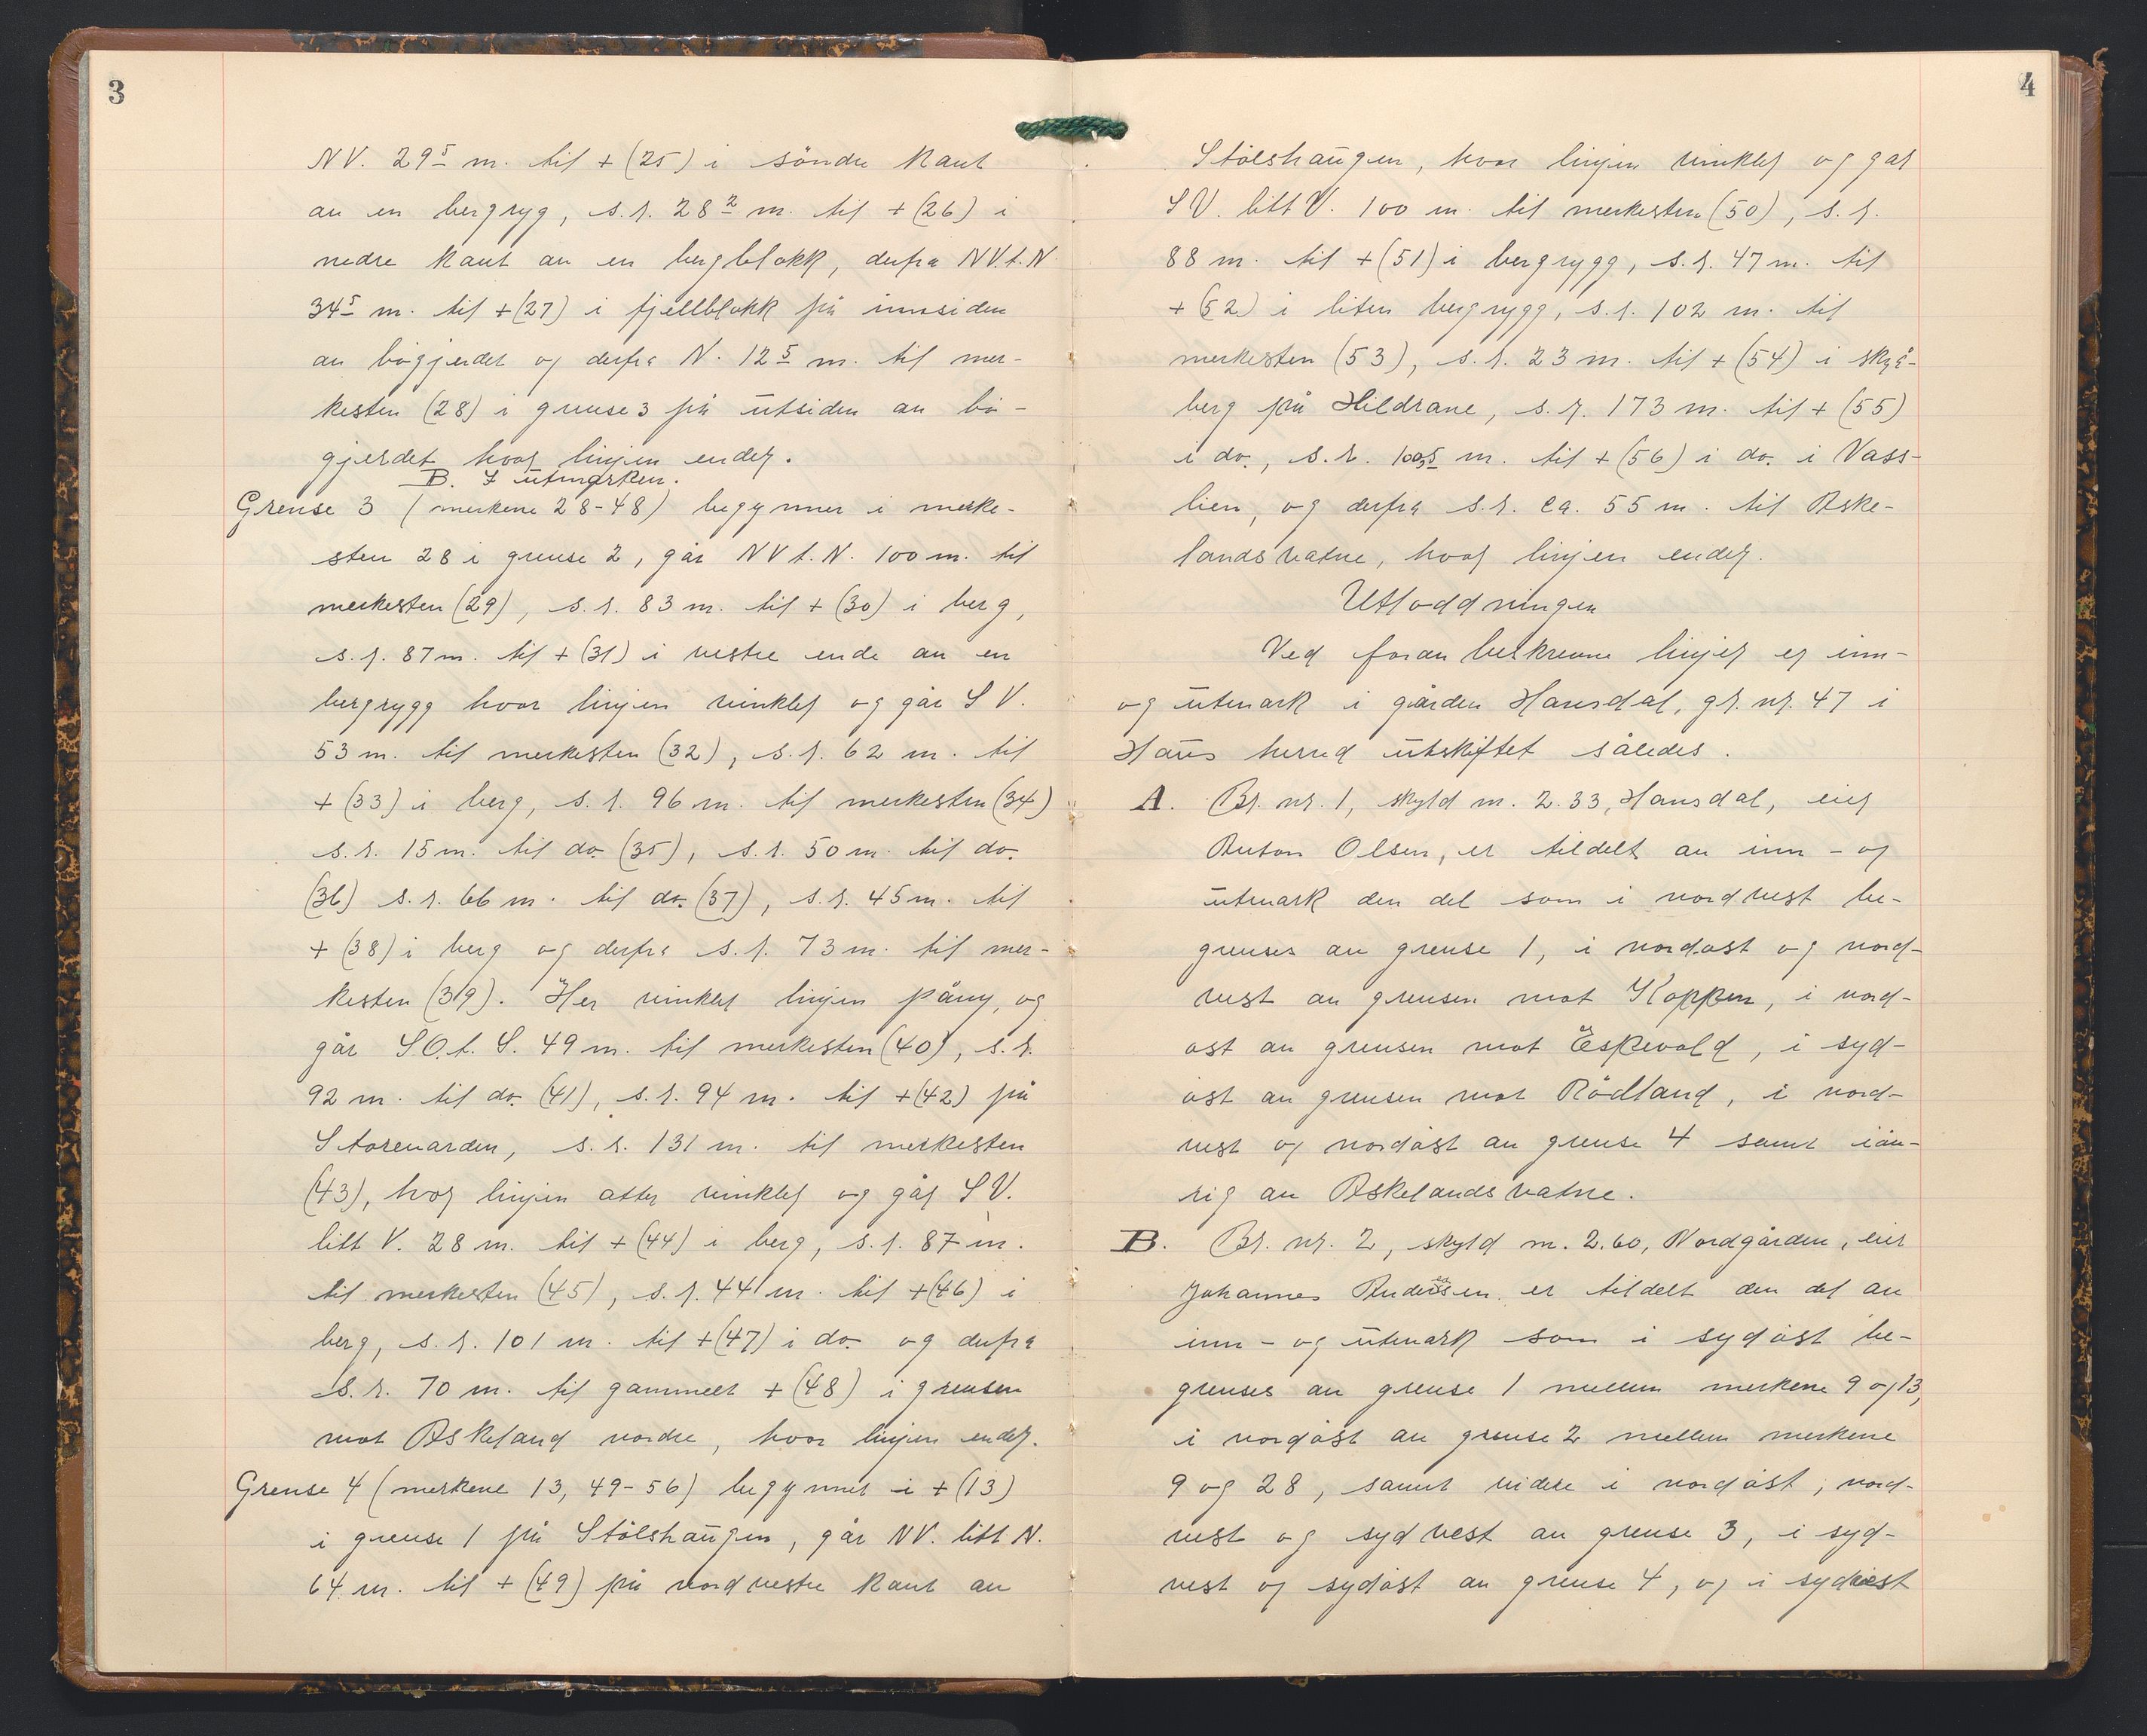 3
NV. 29⁵ m. til + (25) i søndre kant
av en bergryg, s.r. 28² m. til + (26) i
nedre kant av en bergblokk, derfra NV.t.N.
34⁵ m. til + (27) i fjellblokk på innsiden
av bøgjerdet og derfra N. 12⁵ m. til mer-
kesten (28) i grense 3 på utsiden av bø-
gjerdet hvor linjen ender.
B. I utmarken.
Grense 3 (merkene 28-48) begynner i merke-
sten 28 i grense 2, går NV t. N. 100 m. til
merkesten (29), s.r. 83 m. til + (30) i berg,
s.r. 87 m. til + (31) i vestre ende av en
bergrygg hvor linjen vinkler og går SV.
53 m. til merkesten (32), s.r. 62 m. til
+ (33) i berg, s.r. 96 m. til merkesten (34)
s.r. 15 m. til do. (35), s.r. 50 m. til do.
(36) s.r. 66 m. til do. (37), s.r. 45 m. til
+ (38) i berg og derfra s.r. 73 m. til mer-
kesten (39). Her vinkler linjen påny, og
går SO.t. S. 49 m. til merkesten (40), s.r.
92 m. til do. (41), s.r. 94 m. til + (42) på
Storevarden, s.r. 131 m. til merkesten
(43), hvor linjen atter vinkler og går SV.
litt V. 28 m. til + (44) i berg, s.r. 87 m.
til merkesten (45), s.r. 44 m. til + (46) i
berg, s.r. 101 m. til + (47) i do. og derfra
s.r. 70 m. til gammelt + (48) i grensen
mot Askeland nordre, hvor linjen ender.
Grense 4 (merkene 13, 49-56) begynner i + (13)
i grense 1 på Stølshaugen, går NV. litt N.
64 m. til + (49) på nordvestre kant av
4
Stølshaugen, hvor linjen vinkler og går
SV. litt V. 100 m. til merkesten (50), s.r.
88 m. til + (51) i bergrygg, s.r. 47 m. til
+ (52) i liten bergrygg, s.r. 102 m. til
merkesten (53), s.r. 23 m. til + (54) i skrå-
berg på Hildrane, s.r. 173 m. til + (55)
i do., s.r. 100,5 m. til + (56) i do. i Vass-
lien, og derfra s.r. ca. 55 m. til Aske-
landsvatne, hvor linjen ender.
Utloddningen
Ved foran beskrevne linjer er inn-
og utmark i gården Hansdal, gr. nr. 47 i
Haus herred utskiftet således.
A. Br. nr. 1, skyld m. 2.33, Hansdal, eier
Anton Olsen, er tildelt av inn- og
utmark den del som i nordvest be-
grenses av grense 1, i nordøst og nord-
vest av grensen mot Koppen, i nord-
øst av grensen mot Eskevold, i syd-
øst av grensen mot Rødland, i nord-
vest og nordøst av grense 4 samt iøv-
rig av Askelandsvatne.
B. Br. nr. 2, skyld m. 2.60, Nordgården, eier
Johannes Andersen er tildelt den del av
inn- og utmark som i sydøst be-
grenses av grense 1 mellem merkene 9 og 13,
i nordøst av grense 2 mellem merkene
9 og 28, samt videre i nordøst, nord-
vest og sydvest av grense 3, i syd-
vest og sydøst av grense 4, og i sydvest